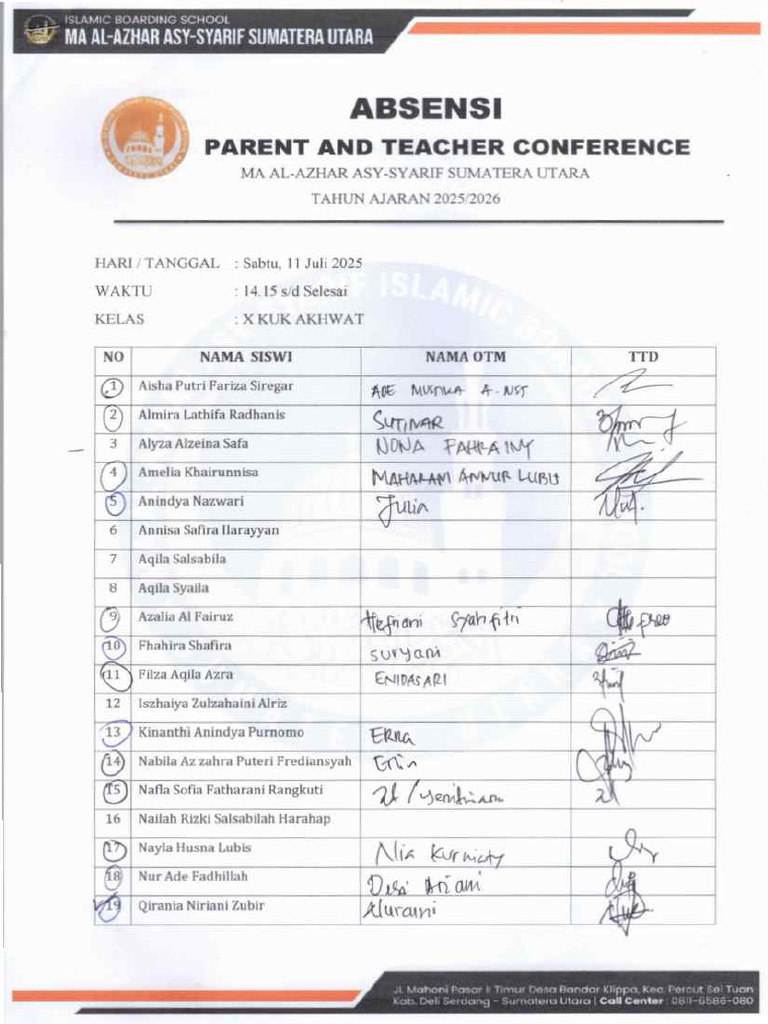 ISLAMIC BOARDING SCHOOL
MA AL-AZHAR ASY-SYARIF SUMATERA UTARA
ABSENSI
PARENT AND TEACHER CONFERENCE
MA AL-AZHAR ASY-SYARIF SUMATERA UTARA
TAHUN AJARAN 2025/2026
HARI / TANGGAL : Sabtu, 11 Juli 2025
WAKTU : 14.15 s/d Selesai
KELAS : X KUK AKHWAT
NO NAMA SISWI NAMA OTM TTD
1 Aisha Putri Fariza Siregar ADE MUSTIKA A. NST
2 Almira Lathifa Radhanis SUTINAR
3 Alyza Alzeina Safa NONA FAHRAINY
4 Amelia Khairunnisa MAHARANI ANNUR LUBIS
5 Anindya Nazwari Julia
6 Annisa Safira Harayyan
7 Aqila Salsabila
8 Aqila Syaila
9 Azalia Al Fairuz Hefriani Syahfitri
10 Fhahira Shafira suryani
11 Filza Aqila Azra ENIDASARI
12 Iszhaiya Zulzahaini Alriz
13 Kinanthi Anindya Purnomo ERNA
14 Nabila Az zahra Puteri Frediansyah Erin
15 Nafla Sofia Fatharani Rangkuti
16 Nailah Rizki Salsabilah Harahap
17 Nayla Husna Lubis Nia Kurniaty
18 Nur Ade Fadhillah Desi Ariani
19 Qirania Niriani Zubir Nuraini
Jl. Mahoni Pasar II Timur Desa Bandar Klippa, Kec. Percut Sei Tuan
Kab. Deli Serdang - Sumatera Utara | Call Center : 0811-6586-080